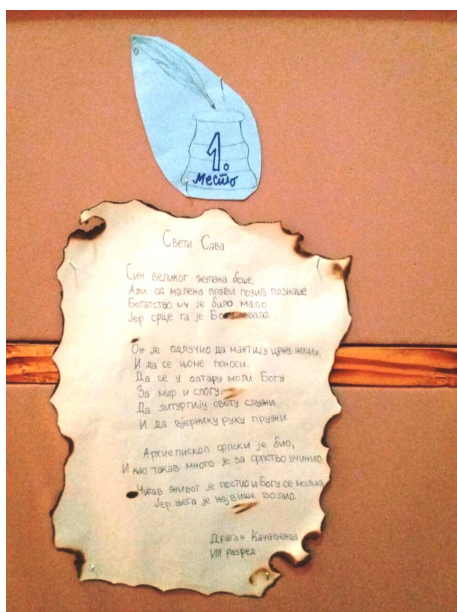 1.
место
Свети Сава
Син великог жупана беше,
Али од малена прави позив познаше
Богатство му је било мало
Јер срце га је
Он је одлучио да мантију црну носи,
И да се њоме поноси.
Да се у олтару моли Богу
За мир и слогу.
Да литургију свету служи
И да вјернику руку пружи.
Архиепископ српски је био,
И као такав много је за српство учинио.
Читав живот је постио и Богу се молио
Јер њега је највише волио.
Драган
VIII разред